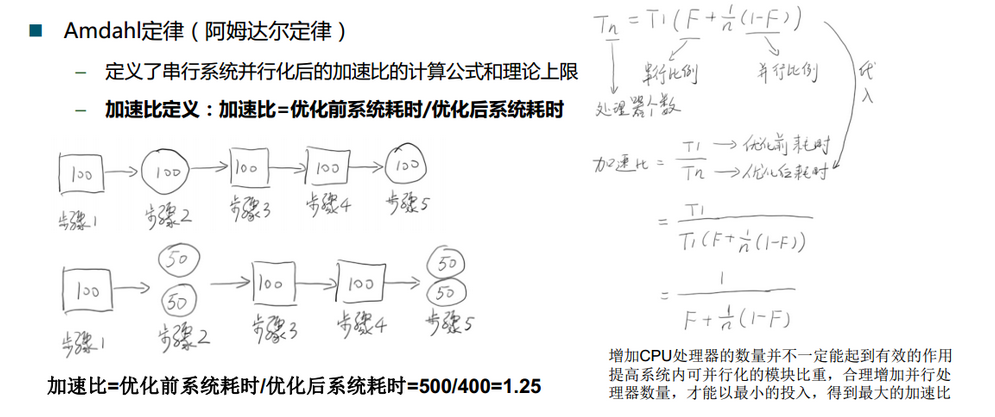 Amdahl定律（阿姆达尔定律）
– 定义了串行系统并行化后的加速比的计算公式和理论上限
– 加速比定义：加速比=优化前系统耗时/优化后系统耗时
100 100 100 100 100
步骤1 步骤2 步骤3 步骤4 步骤5
50 50
100 100 100
50 50
步骤1 步骤2 步骤3 步骤4 步骤5
加速比=优化前系统耗时/优化后系统耗时=500/400=1.25
Tn = T1(F + 1/n(1-F))
串行比例 并行比例
处理器个数
代入
加速比 = T1 → 优化前耗时
Tn → 优化后耗时
= T1
T1(F+1/n(1-F))
= 1
F+1/n(1-F)
增加CPU处理器的数量并不一定能起到有效的作用
提高系统内可并行化的模块比重，合理增加并行处
理器数量，才能以最小的投入，得到最大的加速比